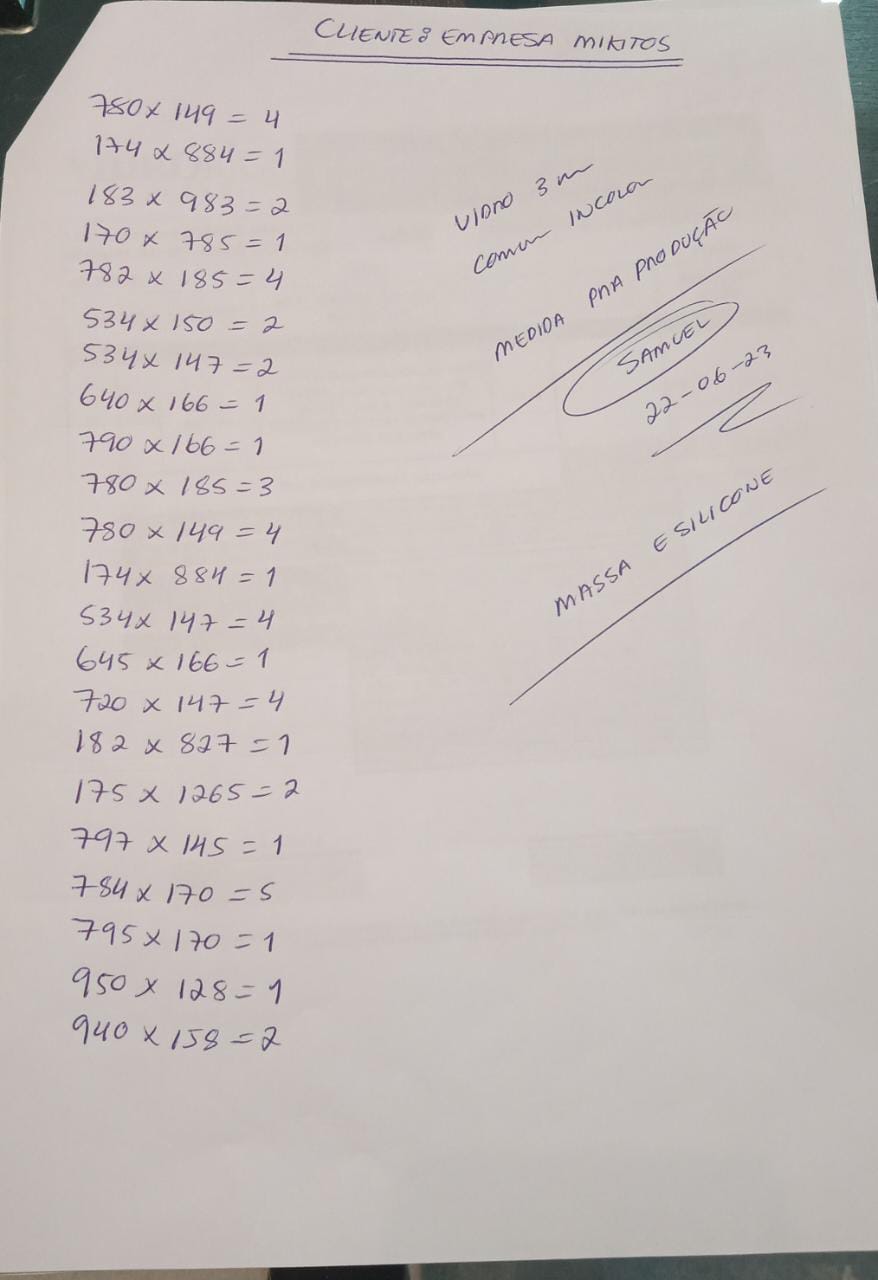 CLIENTE: EMPRESA MIKITOS
780 x 149 = 4
174 x 884 = 1
183 x 983 = 2
170 x 785 = 1
782 x 185 = 4
534 x 150 = 2
534 x 147 = 2
640 x 166 = 1
790 x 166 = 1
780 x 185 = 3
780 x 149 = 4
174 x 884 = 1
534 x 147 = 4
645 x 166 = 1
720 x 147 = 4
182 x 827 = 1
175 x 1265 = 2
797 x 145 = 1
784 x 170 = 5
795 x 170 = 1
950 x 128 = 1
940 x 158 = 2
VIDRO 3 m
comum INCOLOR
MEDIDA PRA PRODUÇÃO
SAMUEL
22-06-23
MASSA E SILICONE